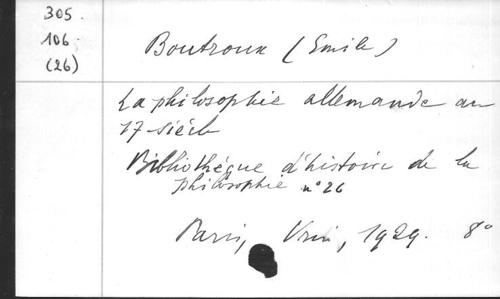 305.
106
(26)
Boutroux (Emile)
La philosophie allemande au
17-siècle
Bibliothéque d'histoire de la
philosophie n° 26
Paris, Vrin, 1929. 8°